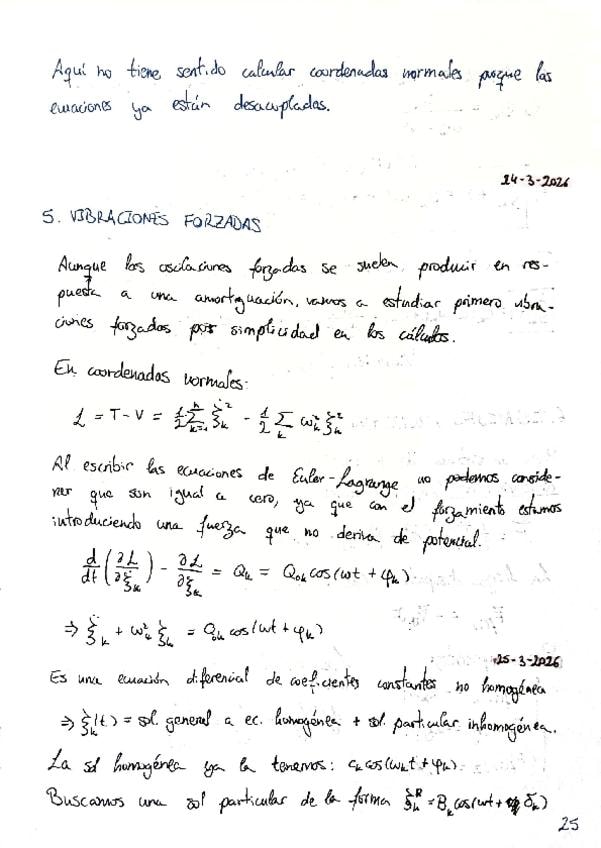 Aquí no tiene sentido calcular coordenadas normales porque las
ecuaciones ya están desacopladas.
24-3-2026
5. VIBRACIONES FORZADAS
Aunque las oscilaciones forzadas se suelen producir en res-
puesta a una amortiguación, vamos a estudiar primero vibra-
ciones forzadas por simplicidad en los cálculos.
En coordenadas normales:
L = T - V = 1/2 Σ_{k=1}^{n} ξ̇_k² - 1/2 Σ_k ω_k² ξ_k²
Al escribir las ecuaciones de Euler-Lagrange no podemos conside-
rar que son igual a cero, ya que con el forzamiento estamos
introduciendo una fuerza que no deriva de potencial.
d/dt (∂L/∂ξ̇_k) - ∂L/∂ξ_k = Q_k = Q_0k cos(ωt + φ_k)
⇒ ξ̈_k + ω_k² ξ_k = Q_0k cos(ωt + φ_k)
25-3-2026
Es una ecuación diferencial de coeficientes constantes no homogénea
⇒ ξ_k(t) = sol. general a ec. homogénea + sol. particular inhomogénea.
La sol homogénea ya la tenemos: c_k cos(ω_k t + φ_k)
Buscamos una sol particular de la forma ξ_k^P = B_k cos(ωt + δ_k)
25